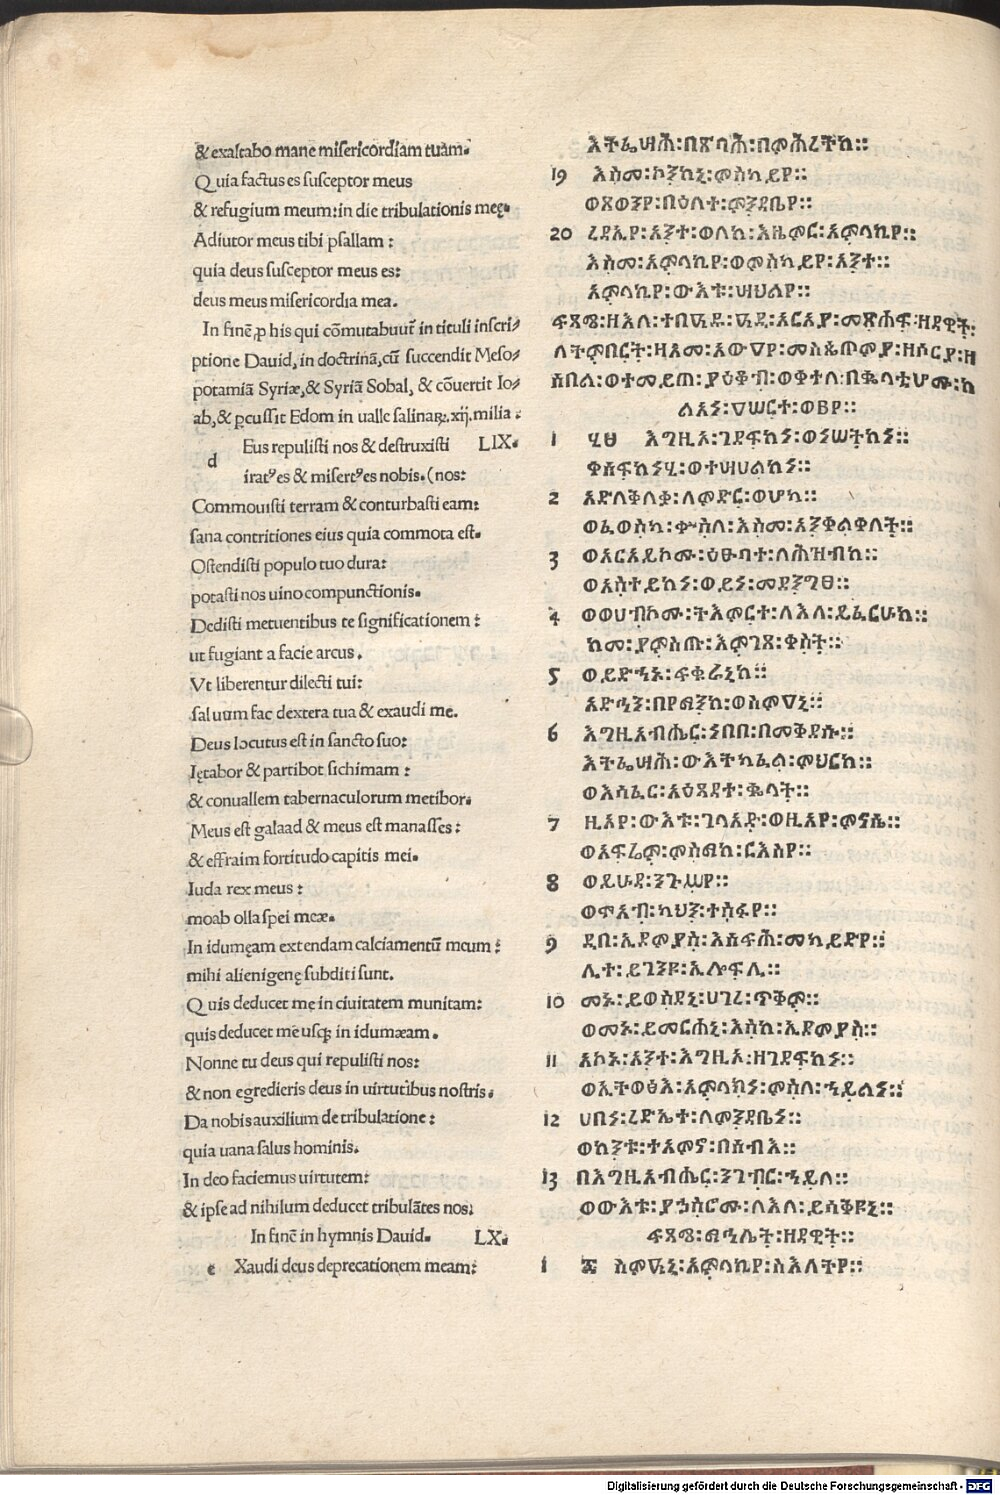 & exaltabo mane misericordiam tuam.
Quia factus es susceptor meus
& refugium meum: in die tribulationis meę.
Adiutor meus tibi psallam:
quia deus susceptor meus es:
deus meus misericordia mea.
In finē, p his qui cōmutabuut̄ in tituli inscri/
ptione Dauid, in doctrinā, cū succendit Meso/
potamiā Syriæ, & Syriā Sobal, & cōuertit Io/
ab, & pcussit Edom in ualle salinaꝝ. xij. milia:
d Eus repulisti nos & destruxisti LIX.
iratꝰ es & misertꝰ es nobis. (nos:
Commouisti terram & conturbasti eam:
sana contritiones eius quia commota est.
Ostendisti populo tuo dura:
potasti nos uino compunctionis.
Dedisti metuentibus te significationem:
ut fugiant a facie arcus.
Vt liberentur dilecti tui:
saluum fac dextera tua & exaudi me.
Deus locutus est in sancto suo:
Lętabor & partibor sichimam:
& conuallem tabernaculorum metibor.
Meus est galaad & meus est manasses:
& effraim fortitudo capitis mei.
Iuda rex meus:
moab olla spei meæ.
In idumęam extendam calciamentū meum:
mihi alienigenę subditi sunt.
Quis deducet me in ciuitatem munitam:
quis deducet me usqꝫ in idumæam.
Nonne tu deus qui repulisti nos:
& non egredieris deus in uirtutibus nostris.
Da nobis auxilium de tribulatione:
quia uana salus hominis.
In deo faciemus uirtutem:
& ipse ad nihilum deducet tribulātes nos.
In finē in hymnis Dauid. LX.
e Xaudi deus deprecationem meam:
እትፌሣሕ፡በጽባሕ፡በምሕረትከ፡፡
19 እስመ፡ኮንከኒ፡ምስካይየ፡፡
ወጸወንየ፡በዕለተ፡ምንዳቤየ፡፡
20 ረዳኢየ፡አንተ፡ወለከ፡እዜምር፡አምላኪየ፡፡
እስመ፡አምላኪየ፡ወምስካይየ፡አንተ፡፡
አምላኪየ፡ውእቱ፡ሣህልየ፡፡
ፍጻሜ፡ዘእለ፡ተበዐዱ፡ዓዲ፡አርአያ፡መጽሐፍ፡ዘዳዊት፡
ለትምህርት፡ዘአመ፡አውዐየ፡መስጴጦምያ፡ዘሶርያ፡
ሶበል፡ወተመይጠ፡ኢዮአብ፡ወቀተለ፡
ዐሠርተ፡ወ፪የ፡፡
1 ፶፱ እግዚኦ፡ገደፍከነ፡ወነሠትከነ፡፡
ቀሰፍከነሂ፡ወተሣሀልከነ፡፡
2 አድለቅለቃ፡ለምድር፡ወሆካ፡፡
ወፈወስካ፡ቍስላ፡እስመ፡አንቀልቀለት፡፡
3 ወአርአይኮሙ፡ዕፁባተ፡ለሕዝብከ፡፡
ወአስተይከነ፡ወይነ፡መደንግፀ፡፡
4 ወወሀብኮሙ፡ትእምርተ፡ለእለ፡ይፈርሁከ፡፡
ከመ፡ያምስጡ፡እምገጸ፡ቀስት፡፡
5 ወይድኅኑ፡ፍቁራኒከ፡፡
አድኅን፡በየማንከ፡ወስምዐኒ፡፡
6 እግዚአብሔር፡ነበበ፡በመቅደሱ፡፡
እትፌሣሕ፡ወእትካፈል፡ምህርከ፡፡
ወእሳፈር፡አዕጻዳተ፡ቈላት፡፡
7 ዚአየ፡ውእቱ፡ገላአድ፡ወዚአየ፡ምናሴ፡፡
ወኤፍሬም፡ምስማከ፡ርእስየ፡፡
8 ወይሁዳ፡ንጉሥየ፡፡
ወሞአብ፡ካህን፡ተስፋየ፡፡
9 ዲበ፡ኤዶምያስ፡እሰፍሕ፡መካይድየ፡፡
ሊተ፡ይገንዩ፡ኢሎፍሊ፡፡
10 መኑ፡ይወስደኒ፡ሀገረ፡ጥቅም፡፡
ወመኑ፡ይመርሐኒ፡እስከ፡ኤዶምያስ፡፡
11 አኮኑ፡አንተ፡እግዚኦ፡ዘገደፍከነ፡፡
ወኢትወፅእ፡አምላክነ፡ምስለ፡ኀይልነ፡፡
12 ሀበነ፡ረድኤተ፡ለምንዳቤነ፡፡
ወከንቱ፡ተአምኖ፡በሰብእ፡፡
13 በእግዚአብሔር፡ንገብር፡ኀይለ፡፡
ወውእቱ፡ያኀስሮሙ፡ለእለ፡ይሳቅዩነ፡፡
ፍጻሜ፡ማኅሌት፡ዘዳዊት፡፡
1 ፷ ስምዐኒ፡አምላኪየ፡ስእለትየ፡፡
Digitalisierung gefördert durch die Deutsche Forschungsgemeinschaft - DFG